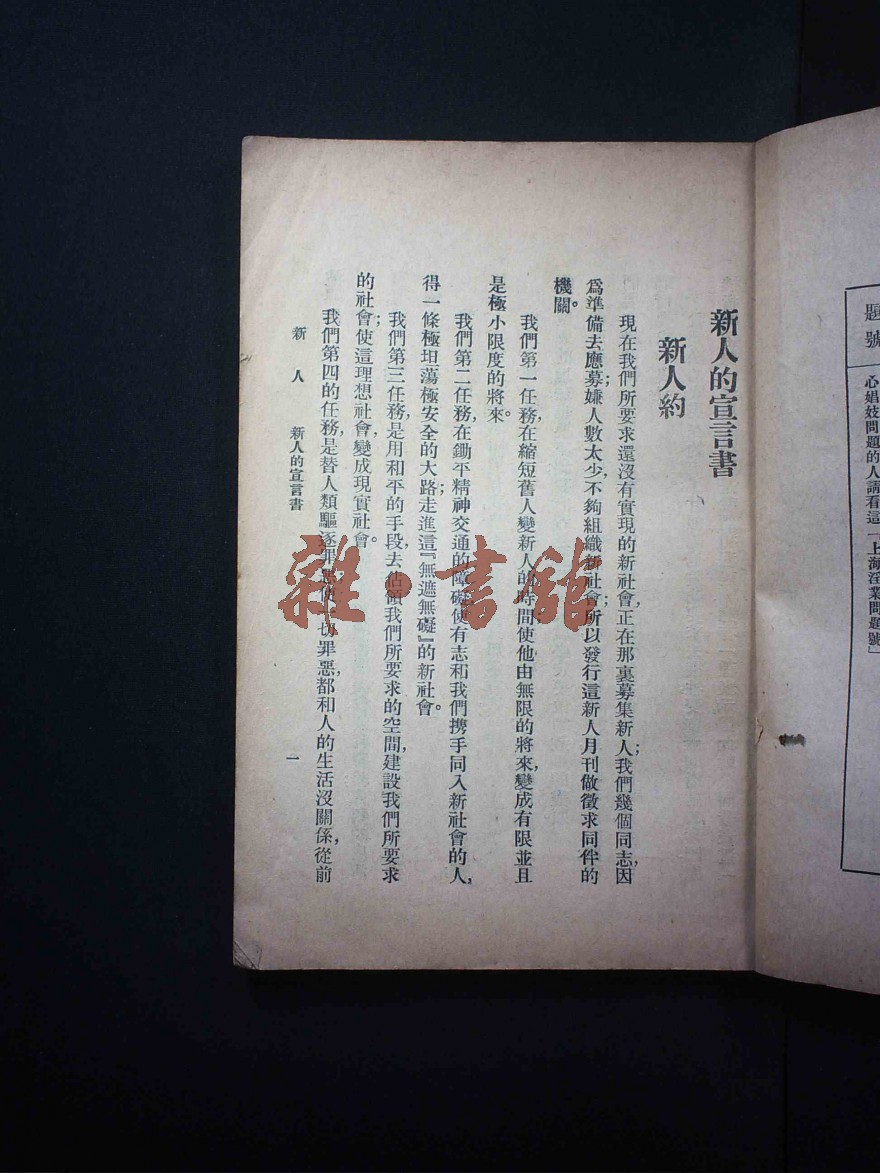 題號
心娼妓問題的人請看這「上海淫業問題號」
新人的宣言書
新人約
現在我們所要求還沒有實現的新社會,正在那裏募集新人;我們幾個同志,因
爲準備去應募嫌人數太少,不夠組織新社會;所以發行這新人月刊做徵求同件的
機關。
我們第一任務,在縮短舊人變新人的時間;使他由無限的將來,變成有限並且
是極小限度的將來。
我們第二任務,在鋤平精神交通的障礙;使有志和我們携手同入新社會的人,
得一條極坦蕩極安全的大路;走進這『無遮無礙』的新社會。
我們第三任務,是用和平的手段,去佔領我們所要求的空間,建設我們所要求
的社會;使這理想社會,變成現實社會。
我們第四的任務,是替人類驅逐罪惡;使一切罪惡,都和人的生活沒關係,從前
新人 新人的宣言書 一
雜·書館